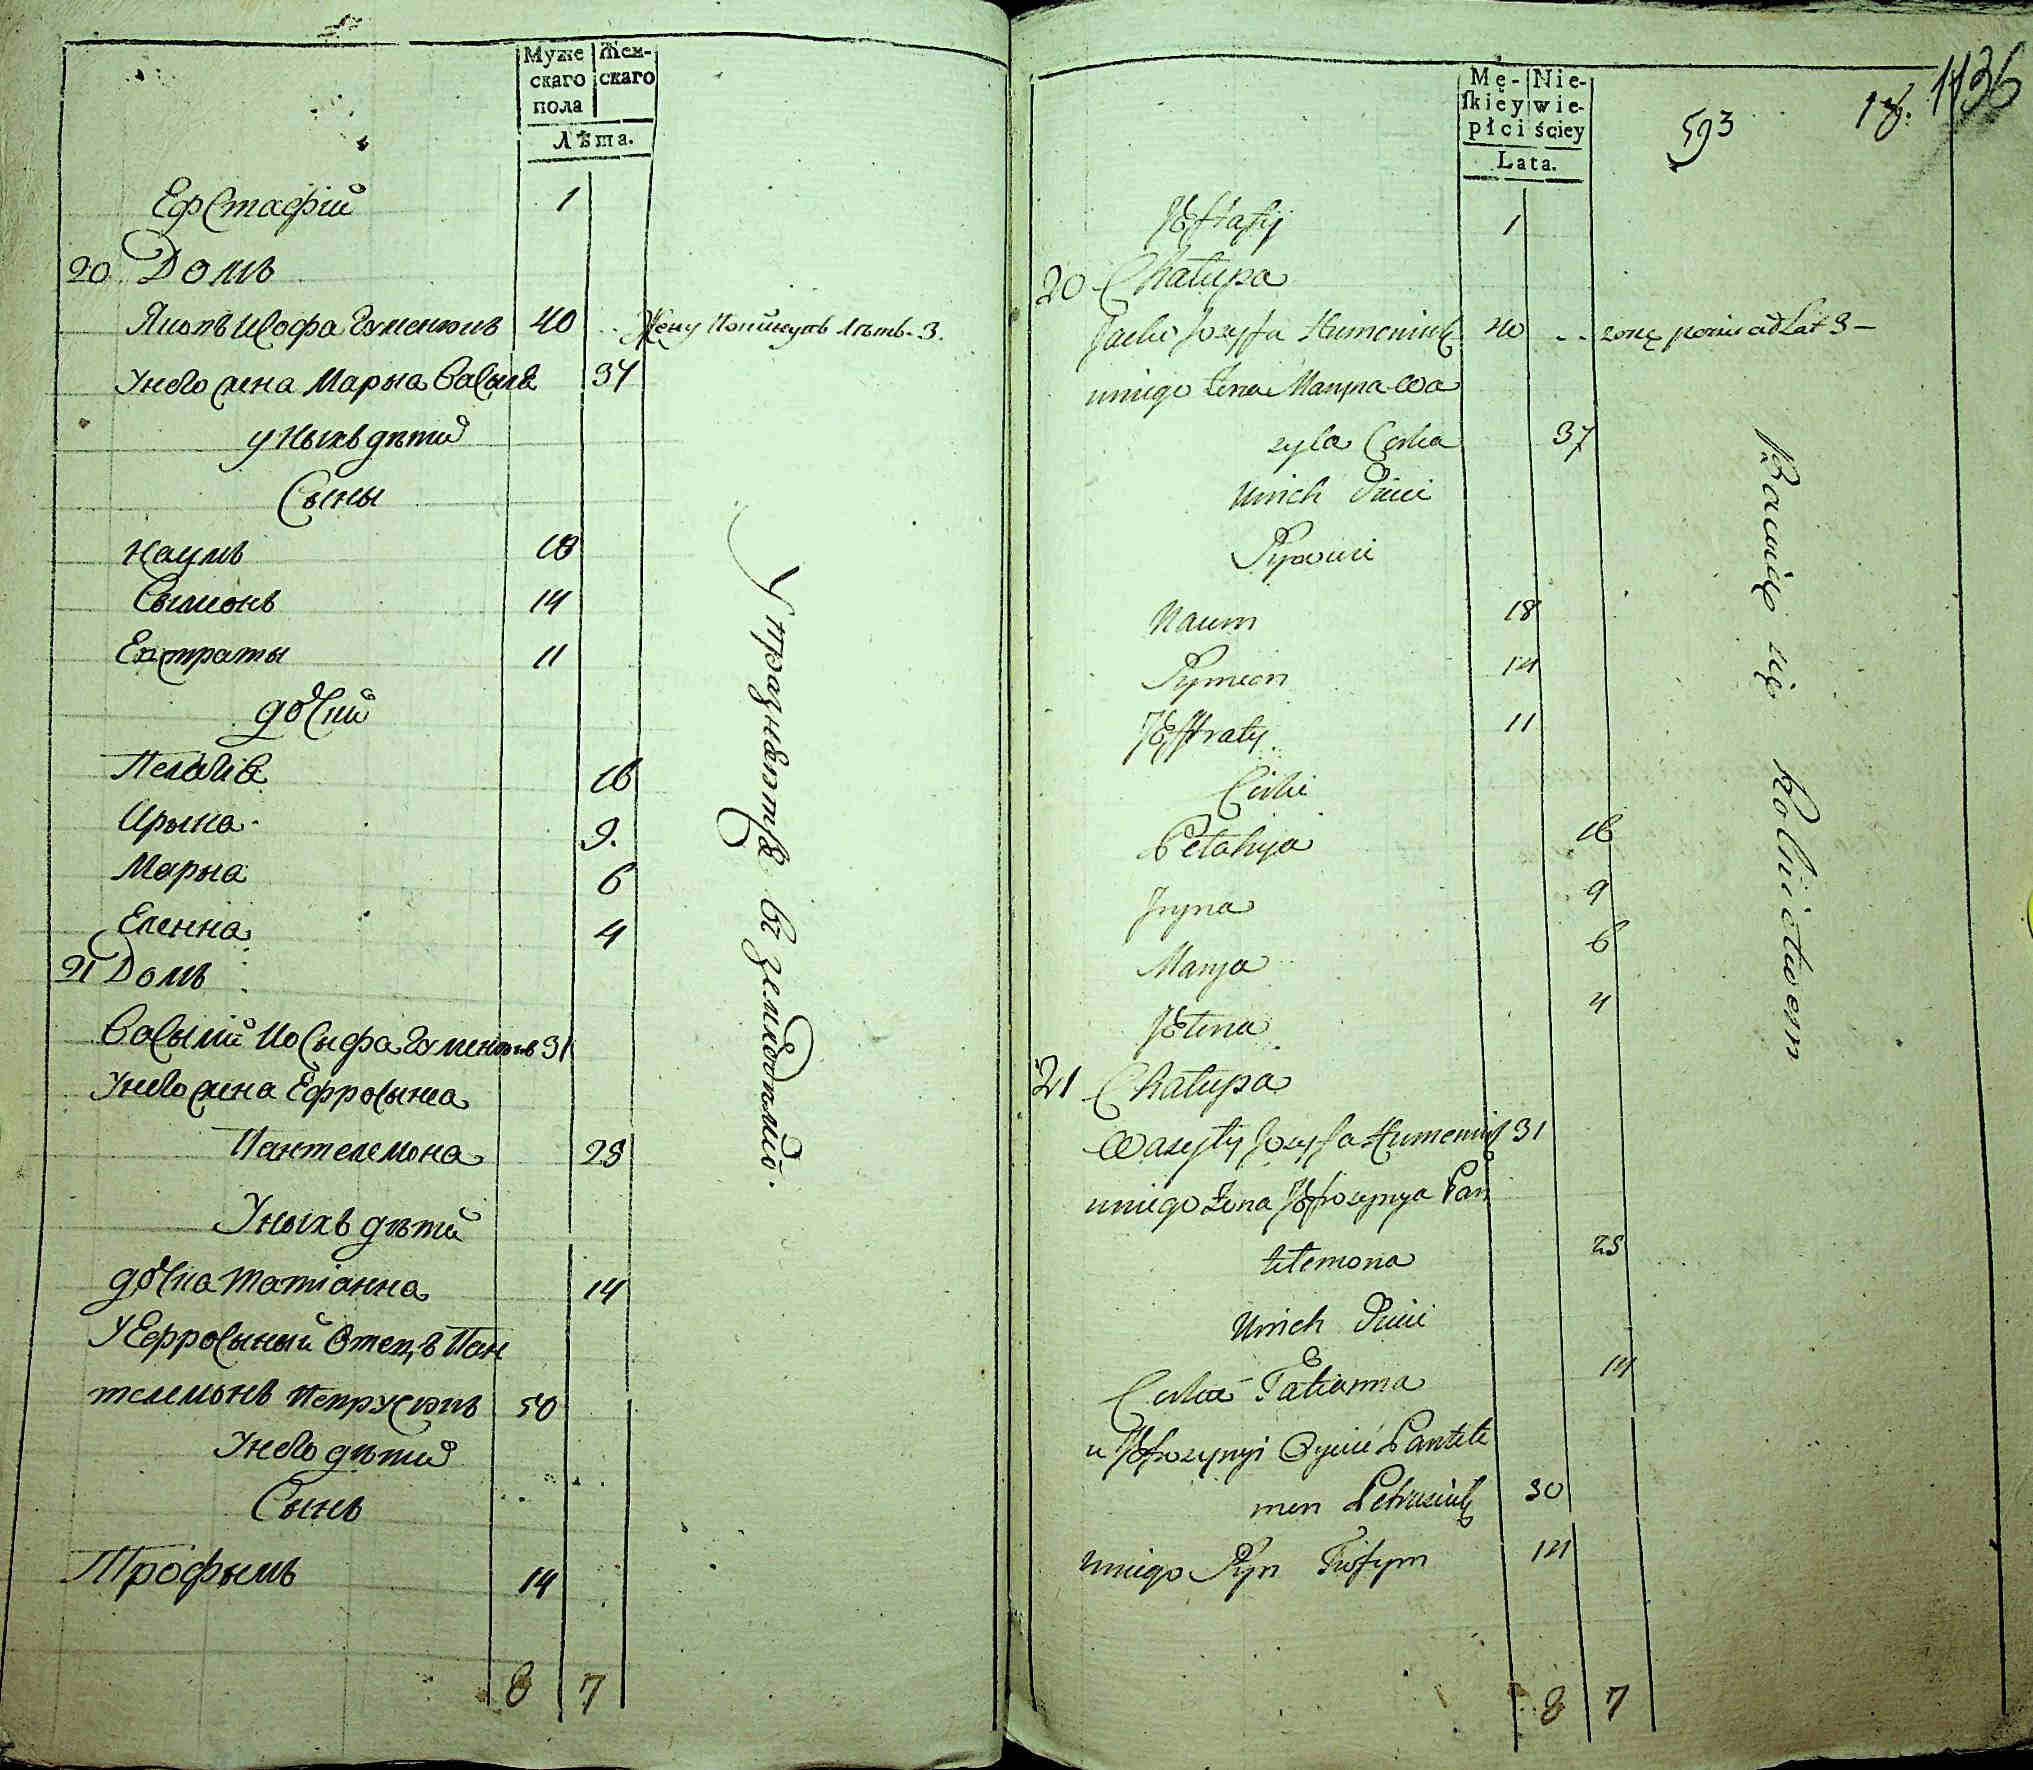 Муже
скаго
пола
Жен-
скаго
Лѣта.
Ефстафій 1
20 Домъ
Якопъ Иосфа Гуменюкъ 40 .. Жену поникулъ лѣтъ 3.
У него жена Марыа Васыля 37
у ныхъ дѣти
Сыны
Наумъ 18
Сымонъ 14
Евстраты 11
дочки
Пелагія 16
Ирына 9.
Марыа 6
Еленна 4
21 Домъ
Васылий Иосыфа Гуменюкъ 31
У него жена Ефросыниа
Пантелемона 28
У ныхъ дѣти
дочка Татіанна 14
У Ефросыныи Отецъ Пан
телемонъ Петрусюкъ 50
У него дѣти
Сынъ
Трофымъ 14
8 7
Упражняются въ земледелію.
Mę-
skiey
płci
Nie-
wie-
ściey
Lata.
593
1136
JEstafy 1
20 Chałupa
Jacko Jozyfa Humeniuk 40 .. żonę poniu od Lat 3 –
uniego Żona Maryna Wa
zyla Corka 37
Unich Dzieci
Synowie
Naum 18
Symeon 14
JEfstraty 11
Corki
Pelahija 16
Iryna 9
Marya 6
JElena 4
21 Chałupa
Wasyly Jozyfa Humeniuk 31
uniego Żona JEfrozynya Pan
telemona 28
Unich Dzieci
Corka Tatianna 14
u JEfrozynyi Oyciec Pantele
mon Petrusiuk 50
uniego Syn Trofym 14
8 7
Bawią się Rolnictwem